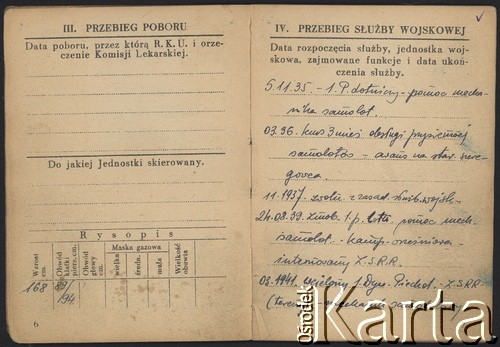 III. PRZEBIEG POBORU
Data poboru, przez którą R. K. U. i orze-
czenie Komisji Lekarskiej.
Do jakiej Jednostki skierowany.
Rysopis
Wzrost cm.
Obwód klatki piers. cm.
Obwód głowy cm.
Maska gazowa
wielka
średn.
mała
Wielkość obuwia
168
194
6
IV. PRZEBIEG SŁUŻBY WOJSKOWEJ
Data rozpoczęcia służby, jednostka woj-
skowa, zajmowane funkcje i data ukoń-
czenia służby.
5.11.35. - 1. P. lotniczy - pomoc mecha-
nika samolot.
03.36. kurs 3 mies. obsługi
samolotów - awans na star. szere-
gowca.
11.1937. zwoln. z zasad. służb. wojsk.
24.08.39. zmob. 1 p. lotn. pomoc mech.
samolot. - kamp. wrześniowa
internowany Z.S.R.R.
1941. wcielony Dyw. Piechot. - Z.S.R.R.
Ośrodek
Karta